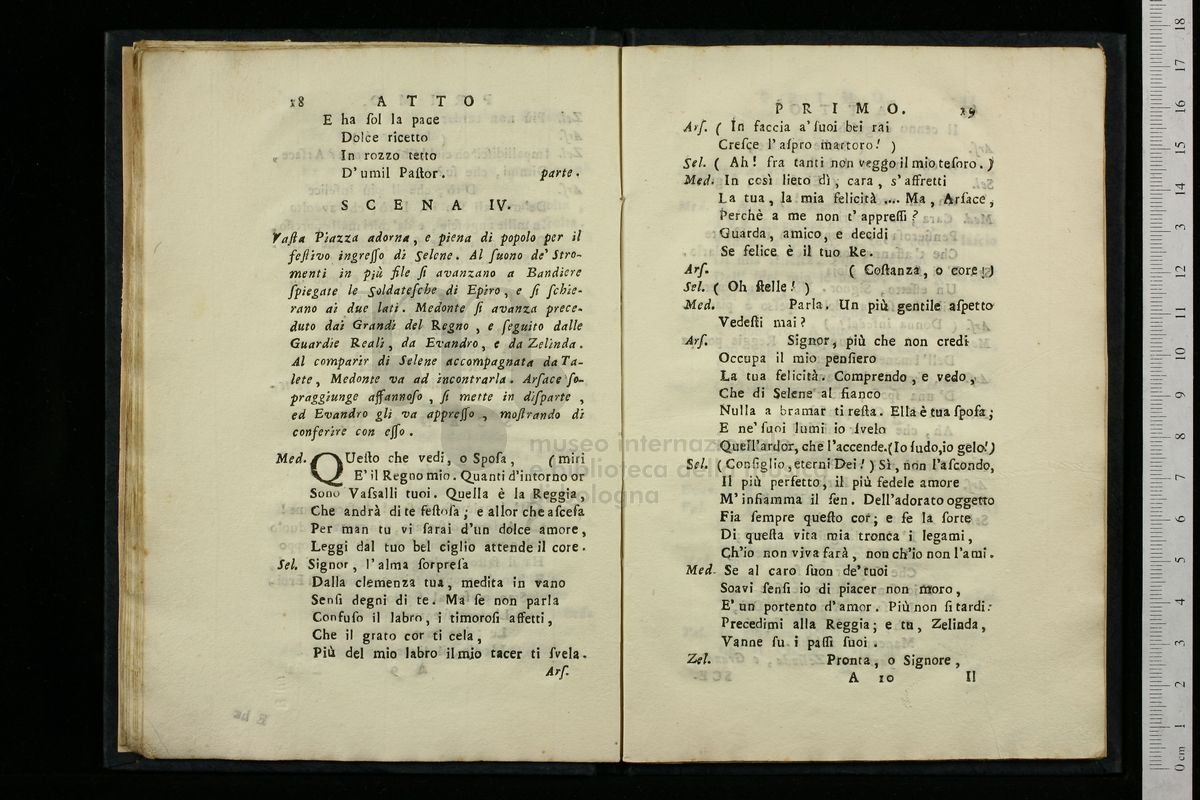 18 ATTO
E ha ſol la pace
Dolce ricetto
In rozzo tetto
D'umil Paſtor. parte.
SCENA IV.
Vaſta Piazza adorna, e piena di popolo per il
feſtivo ingreſſo di Selene. Al ſuono de' Stro-
menti in più file ſi avanzano a Bandiere
ſpiegate le Soldateſche di Epiro, e ſi ſchie-
rano ai due lati. Medonte ſi avanza prece-
duto dai Grandi del Regno, e ſeguito dalle
Guardie Reali, da Evandro, e da Zelinda.
Al comparir di Selene accompagnata da Ta-
lete, Medonte va ad incontrarla. Arſace ſo-
praggiunge affannoſo, ſi mette in diſparte,
ed Evandro gli va appreſſo, moſtrando di
conferire con eſſo.
Med. QUeſto che vedi, o Spoſa, (miri
E' il Regno mio. Quanti d'intorno or
Sono Vaſsalli tuoi. Quella è la Reggia,
Che andrà di te feſtoſa; e allor che aſceſa
Per man tu vi ſarai d'un dolce amore,
Leggi dal tuo bel ciglio attende il core.
Sel. Signor, l'alma ſorpreſa
Dalla clemenza tua, medita in vano
Senſi degni di te. Ma ſe non parla
Confuſo il labro, i timoroſi affetti,
Che il grato cor ti cela,
Più del mio labro il mio tacer ti ſvela.
Arſ.
PRIMO. 19
Arſ. ( In faccia a' ſuoi bei rai
Creſce l'aſpro martoro! )
Sel. ( Ah! fra tanti non veggo il mio teſoro. )
Med. In così lieto dì, cara, s'affretti
La tua, la mia felicità .... Ma, Arſace,
Perchè a me non t'appreſſi?
Guarda, amico, e decidi
Se felice è il tuo Re.
Arſ. ( Coſtanza, o core! )
Sel. ( Oh ſtelle! )
Med. Parla. Un più gentile aſpetto
Vedeſti mai?
Arſ. Signor, più che non credi
Occupa il mio penſiero
La tua felicità. Comprendo, e vedo,
Che di Selene al fianco
Nulla a bramar ti reſta. Ella è tua ſpoſa;
E ne' ſuoi lumi io ſvelo
Quell'ardor, che l'accende. (Io ſudo, io gelo!)
Sel. (Conſiglio, eterni Dei! ) Sì, non l'aſcondo,
Il più perfetto, il più fedele amore
M'infiamma il ſen. Dell'adorato oggetto
Fia ſempre queſto cor; e ſe la ſorte
Di queſta vita mia tronca i legami,
Ch'io non viva farà, non ch'io non l'ami.
Med. Se al caro ſuon de' tuoi
Soavi ſenſi io di piacer non moro,
E' un portento d'amor. Più non ſi tardi:
Precedimi alla Reggia; e tu, Zelinda,
Vanne ſu i paſſi ſuoi.
Zel. Pronta, o Signore,
A 10 Il
museo internazionale
e biblioteca della musica
di bologna
18
17
16
15
14
13
12
11
10
9
8
7
6
5
4
3
2
1
0 cm